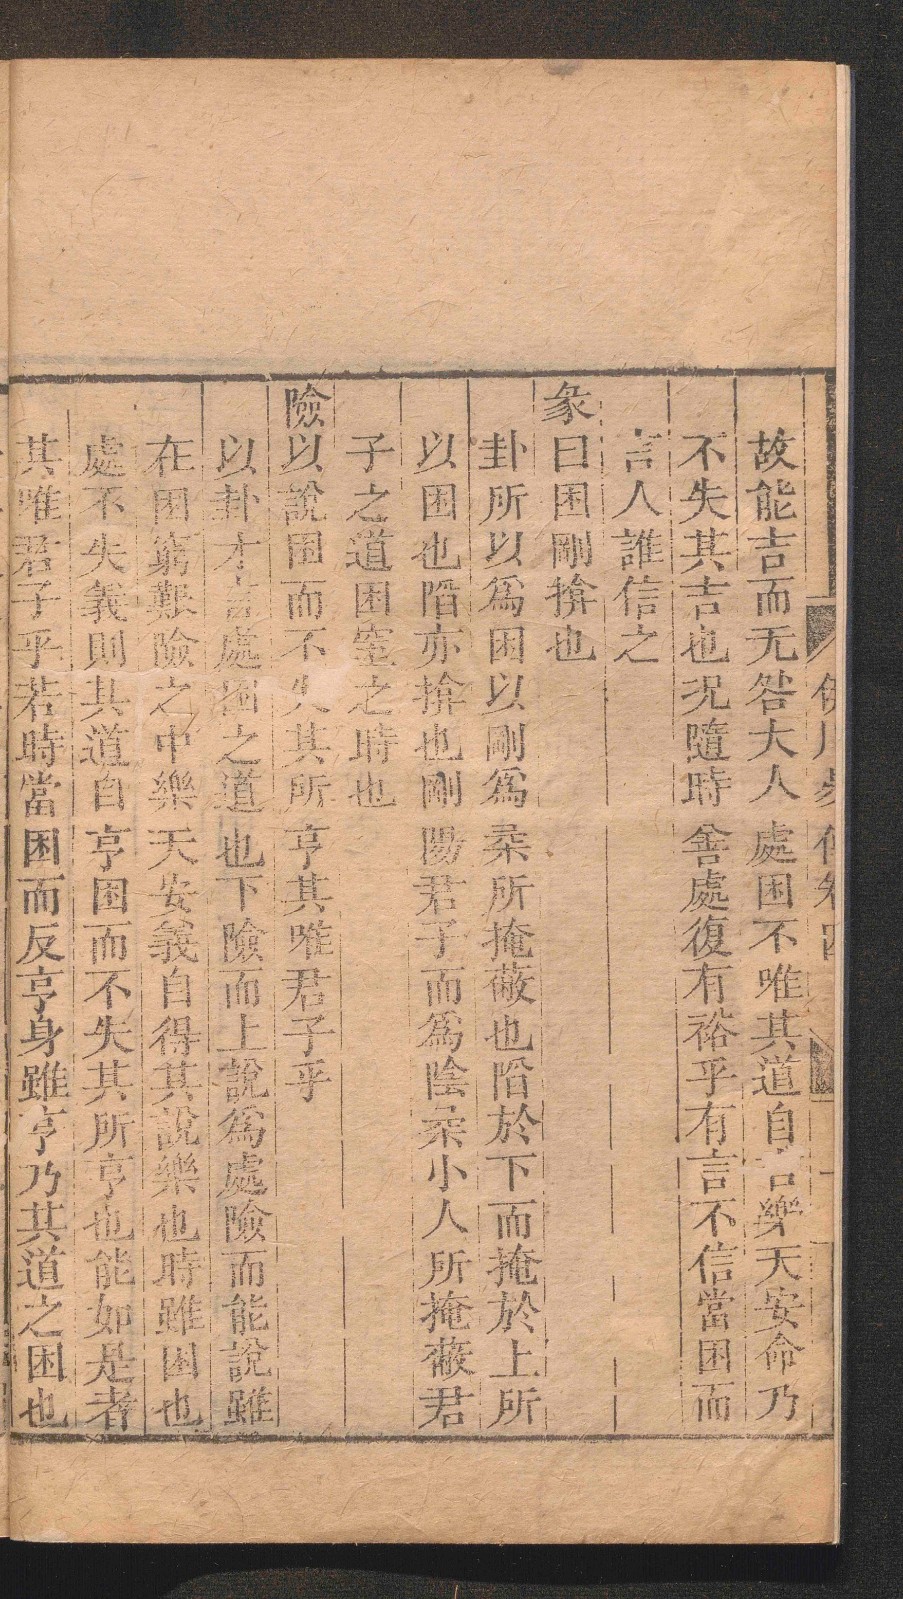 故能吉而无咎大人處困不唯其道自吉樂天安命乃
不失其吉也况隨時善處復有裕乎有言不信當困而
言人誰信之
彖曰困剛揜也
卦所以爲困以剛爲柔所掩蔽也陷於下而掩於上所
以困也陷亦揜也剛陽君子而爲陰柔小人所掩蔽君
子之道困窒之時也
險以說困而不失其所亨其唯君子乎
以卦才言處困之道也下險而上說爲處險而能說雖
在困窮艱險之中樂天安義自得其說樂也時雖困也
處不失義則其道自亨困而不失其所亨也能如是者
其唯君子乎若時當困而反亨身雖亨乃其道之困也